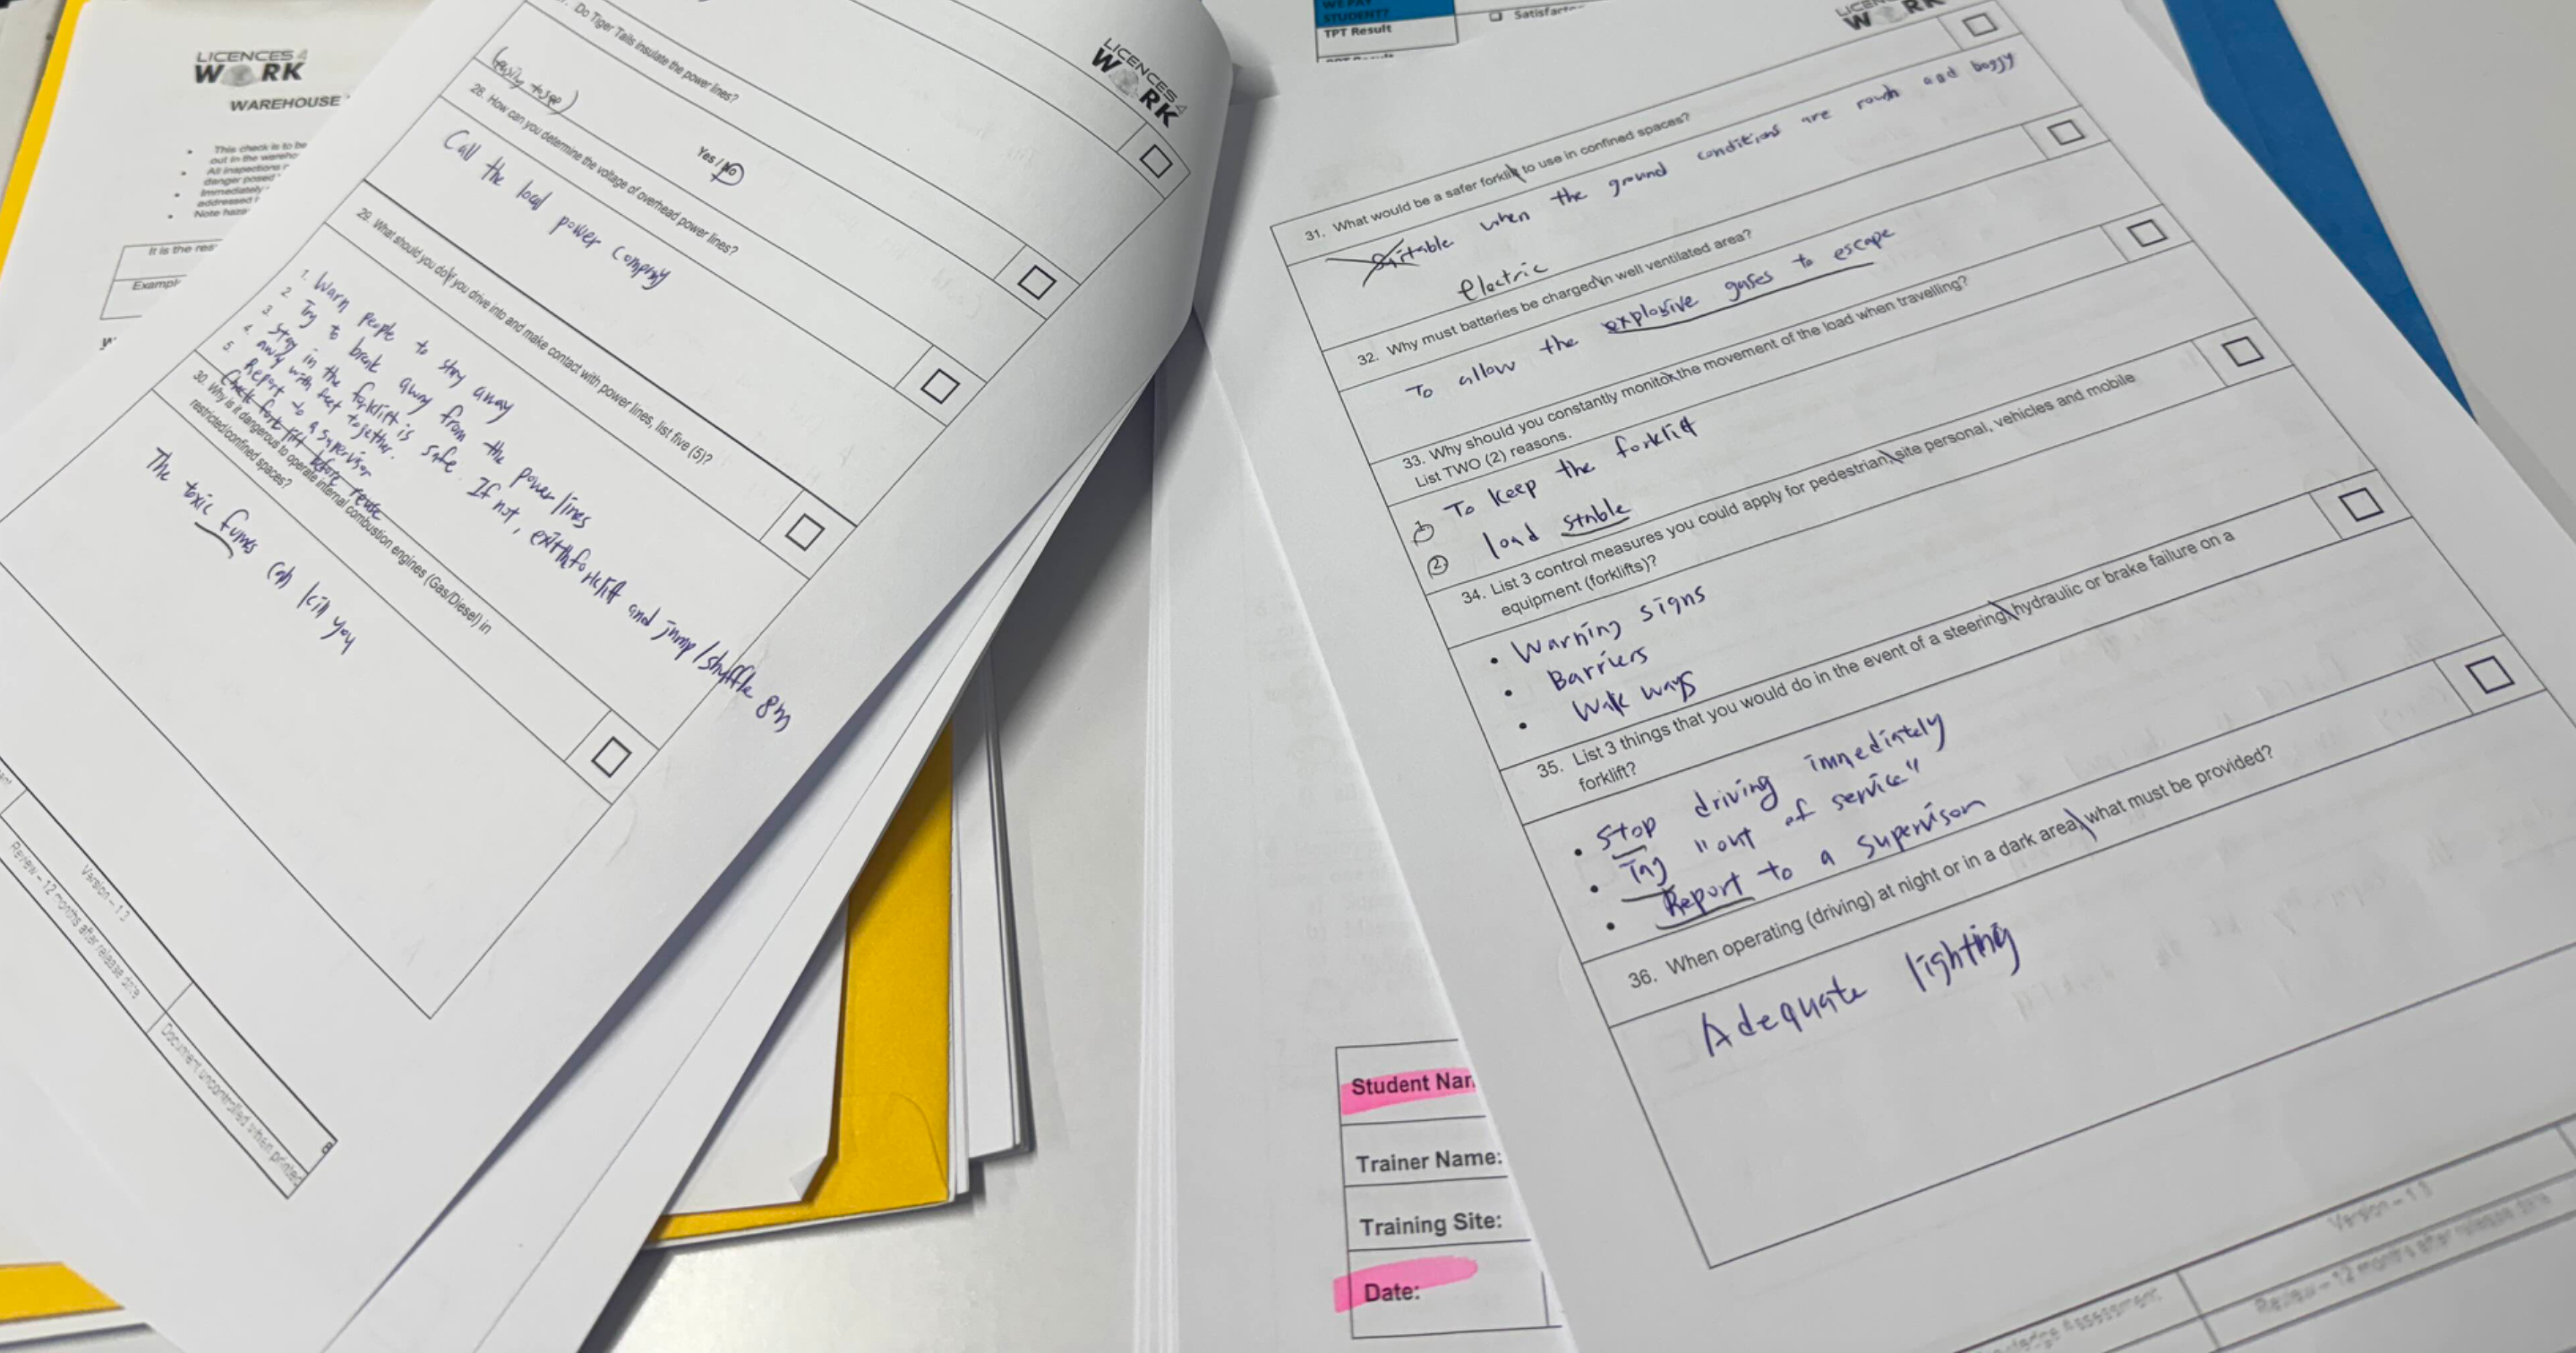 LICENCES 4
WORK
WAREHOUSE
This check is to be
out in the wareho
All inspections
danger posed
Immediately
addressed
Note haza
It is the res
Exampl
LICENCES 4
WORK
Do Tiger Tails insulate the power lines?
(easily to see)
Yes / No
28. How can you determine the voltage of overhead power lines?
Call the local power company
29. What should you do if you drive into and make contact with power lines, list five (5)?
1. Warn people to stay away
2. Try to break away from the power lines
3. Stay in the forklift is safe. If not, exit the forklift and jump/shuffle 8m
4. away with feet together.
5. Report to a supervisor
Check fork lift before reuse
30. Why is it dangerous to operate internal combustion engines (Gas/Diesel) in
restricted/confined spaces?
The toxic fumes can kill you
Version – 1.3
Review – 12 months after release date
Document uncontrolled when printed
8
WE PAY
STUDENT?
TPT Result
Satisfactor
LICEN
WORK
31. What would be a safer forklift to use in confined spaces?
Suitable when the ground conditions are rough and boggy
electric
32. Why must batteries be charged in well ventilated area?
To allow the explosive gases to escape
33. Why should you constantly monitor the movement of the load when travelling?
List TWO (2) reasons.
1 To keep the forklift
2 load stable
34. List 3 control measures you could apply for pedestrian, site personal, vehicles and mobile
equipment (forklifts)?
• Warning signs
• Barriers
• Walk ways
35. List 3 things that you would do in the event of a steering, hydraulic or brake failure on a
forklift?
• Stop driving immediately
• Tag "out of service"
• Report to a supervisor
36. When operating (driving) at night or in a dark area, what must be provided?
Adequate lighting
Student Nam
Trainer Name:
Training Site:
Date:
Version – 1.3
Review – 12 months after release date
Knowledge Assessment